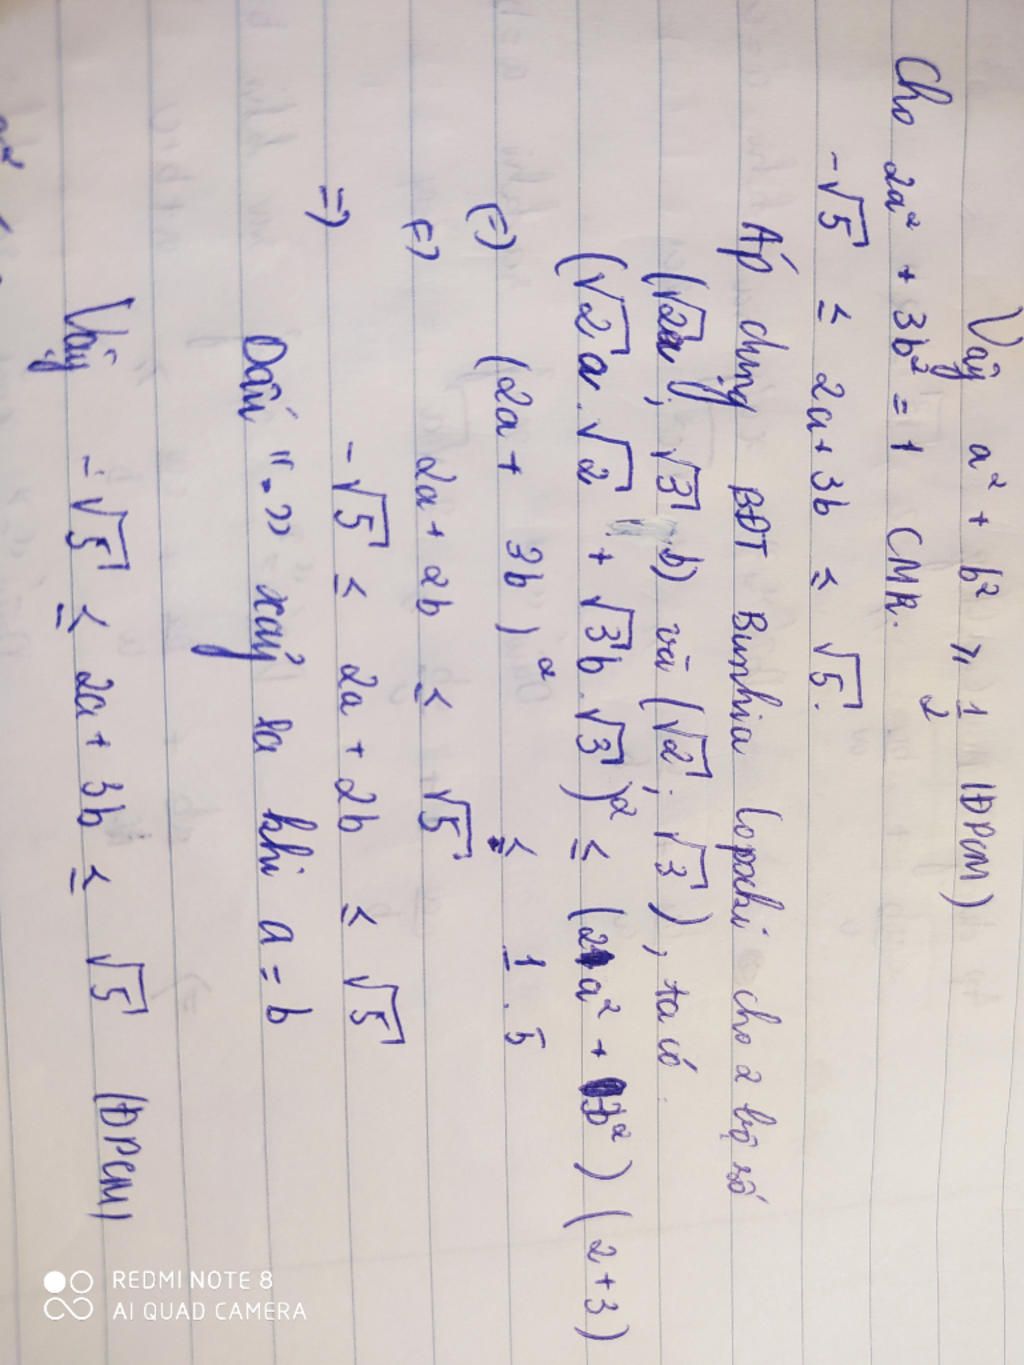 Vậy a² + b² ≥ 1/2 (ĐPCM)
Cho 2a² + 3b² = 1 CMR.
-√5 ≤ 2a+3b ≤ √5.
Áp dụng BĐT Bunhia Copxki cho 2 bộ số
(√2a; √3.b) và (√2; √3), ta có:
(√2a.√2 + √3b.√3)² ≤ (2a² + 3b²)(2+3)
(=) (2a + 3b)² ≤ 1.5
(=) 2a+2b ≤ √5
=> -√5 ≤ 2a+2b ≤ √5
Dấu "=" xảy ra khi a = b
Vậy -√5 ≤ 2a+3b ≤ √5 (ĐPCM)
REDMI NOTE 8
AI QUAD CAMERA